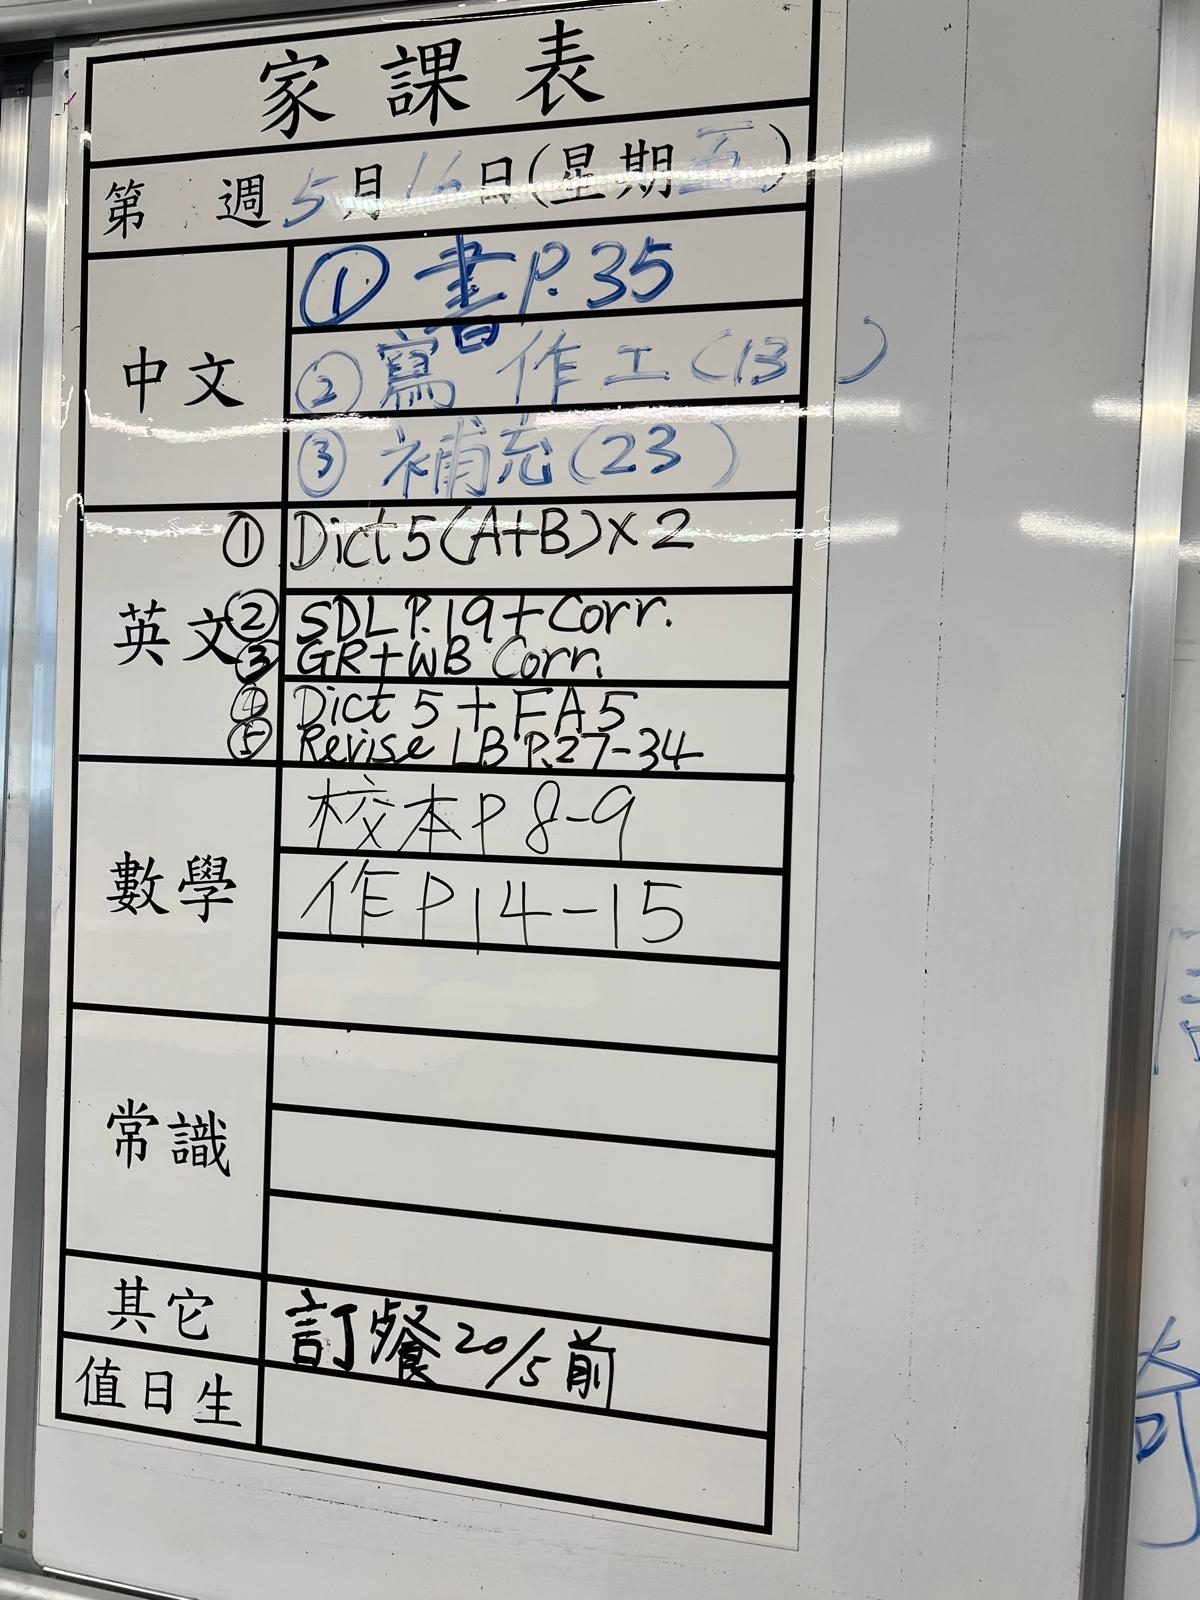 家課表
第 週 5月16日(星期五)
中文
① 書P.35
② 寫作工(13)
③ 補充(23)
英文
① Dict 5(A+B)×2
② SDL P.19+Corr.
③ GR+WB Corr.
④ Dict 5 + FA5
⑤ Revise LB P.27-34
數學
校本P 8-9
作P14-15
常識
其它
訂餐 20/5前
值日生